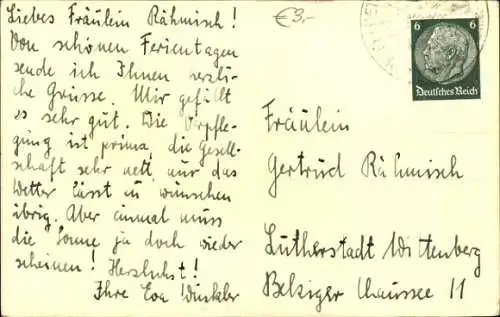 Liebes Fräulein Rähmisch!
Von schönen Ferientagen
sende ich Ihnen herzli-
che Grüsse. Mir gefällt
es sehr gut. Die Verpfle-
gung ist prima, die Gesell-
schaft sehr nett, nur das
Wetter lässt zu wünschen
übrig. Aber einmal muss
die Sonne ja doch wieder
scheinen! Herzlichst!
Ihre Eva Winkler
€3,-
6
Deutsches Reich
Fräulein
Gertrud Rähmisch
Lutherstadt Wittenberg
Belziger Chaussee 11